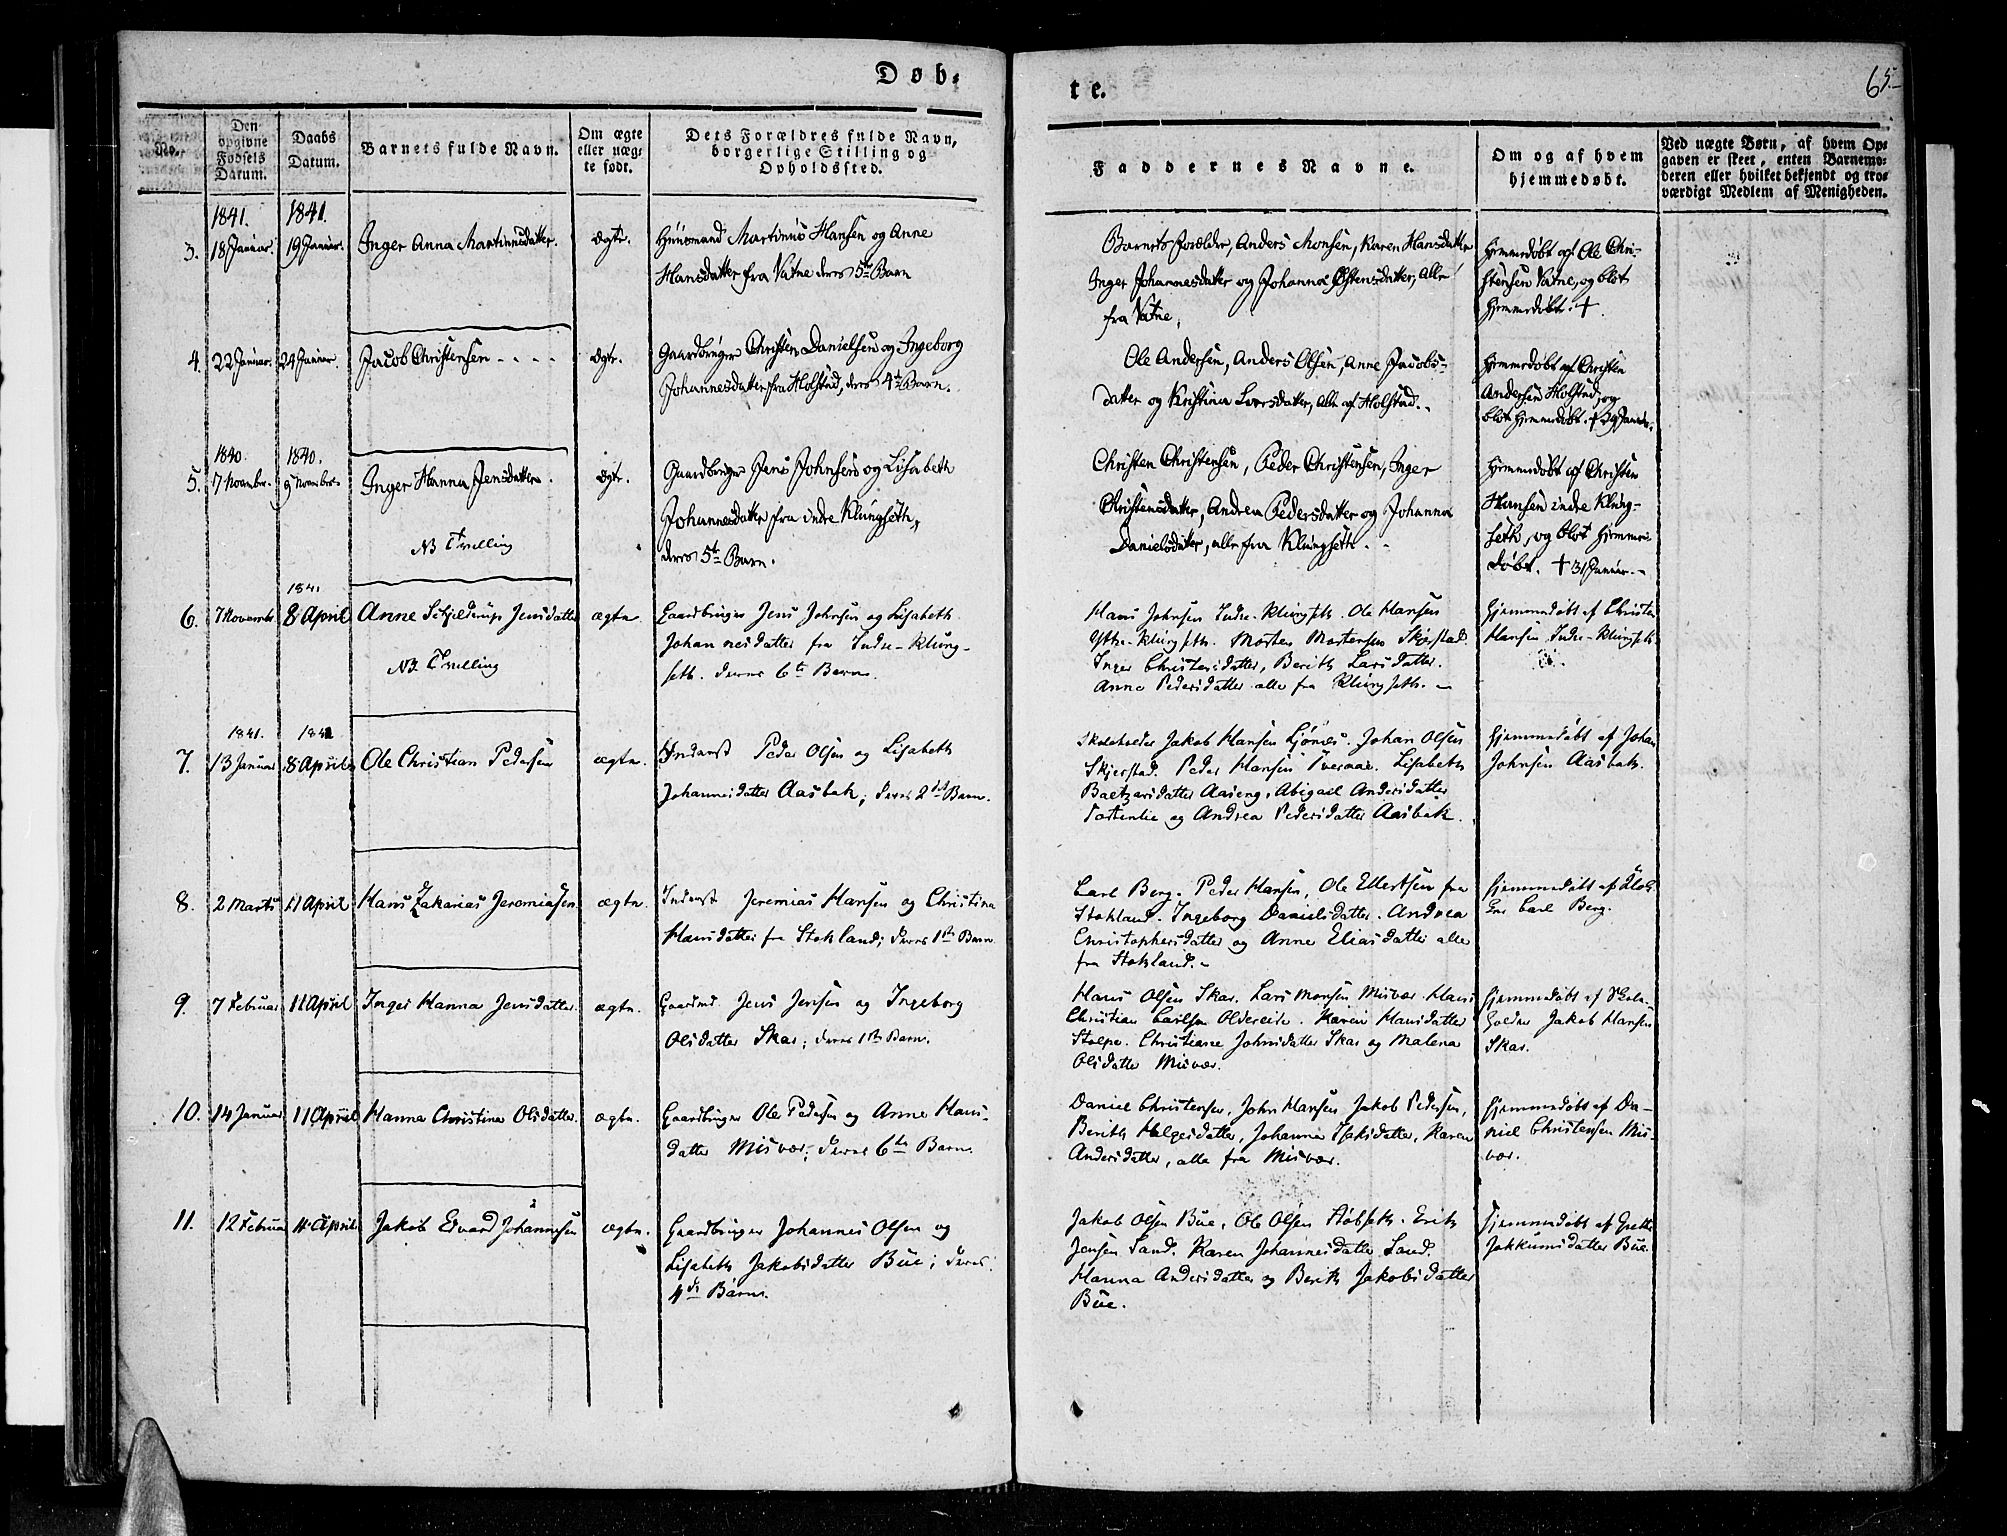 Døb-
te.
65.
No.
Den opgivne Fødsels Datum.
Daabs Datum.
Barnets fulde Navn.
Om ægte eller uægte født.
Dets Forældres fulde Navn, borgerlige Stilling og Opholdssted.
Faddernes Navne.
Om og af hvem hjemmedøbt.
Ved uægte Børn, af hvem Opgaven er skeet, enten Barnemoderen eller hvilket bekjendt og troværdigt Medlem af Menigheden.
1841. 1841.
3. 18 Januar. 19 Januar. Inger Anna Martinusdatter. ægte. Huusmand Martinus Hansen og Anne
Hansdatter fra Vatne deres 5te Barn
Barnets Forælder, Anders Monsen, Karen Hansdatter
Inger Johannesdatter og Johanna Østensdatter, alle
fra Vatne,
Hjemmedøbt af Ole Chri-
stensen Vatne, og blot
hjemmedøbt. +.
4. 22 Januar. 24 Januar. Jacob Christensen - - - - ægte. Gaardbruger Christen Danielsen og Ingeborg
Johannesdatter fra Holstad, deres 4te Barn.
Ole Andersen, Anders Olsen, Anne Jacobs-
datter og Kristina Larsdatter, alle af Holstad.
Hjemmedøbt af Christen
Andersen Holstad, og
blot hjemmedøbt. + 29 Januar.
1840. 1840.
5. 7 Novembr. 9 Novembr. Inger Hanna Jensdatter. ægte. Gaardbruger Jens Johnsen og Lisabeth
Johannesdatter fra indre Klungseth,
deres 5te Barn.
NB Tvilling
Christen Christensen, Peder Christensen, Inger
Christensdatter, Andrea Pedersdatter og Johanna
Danielsdatter, alle fra Klungseth.
Hjemmedøbt af Christen
Hansen indre Klung-
seth, og blot hjemme-
døbt. + 31 Januar.
1841
6. 7 Novembr 8 April Anne Schjelderup Jensdatter ægte. Gaardbruger Jens Johnsen og Lisabeth
Johannesdatter fra Indre-Klung-
seth. deres 6te Barn.
NB Tvilling
Hans Johnsen Indre-Klungseth. Ole Hansen
Ytre-Klungseth. Morten Mortensen Skjerstad.
Inger Christensdatter, Berith Larsdatter.
Anne Pedersdatter alle fra Klungseth.
Hjemmedøbt af Christen
Hansen Indre-Klungseth
1841. 1841
7. 13 Januar 8 April Ole Christian Pedersen ægte. Inderst Peder Olsen og Lisabeth
Johannesdatter Aasbak; deres 2det Barn.
Skoleholder Jakob Hansen Ljønes. Johan Olsen
Skjerstad. Peder Hansen Tveraae. Lisabeth
Baltzersdatter Aaseng. Abigael Andersdatter
og Andrea Pedersdatter Aasbak.
Hjemmedøbt af Johan
Johnsen Aasbak.
8. 2 Marts 11 April Hans Zakarias Jeremiasen ægte. Inderst Jeremias Hansen og Christina
Hansdatter fra Stokland; deres 1ste Barn
Carl Berg. Peder Hansen, Ole Ellertsen fra
Stokland. Ingeborg Danielsdatter. Andrea
Christophersdatter og Anne Eliasdatter alle
fra Stokland.
Hjemmedøbt af Klok-
ker Carl Berg.
9. 7 Februar 11 April Inger Hanna Jensdatter. ægte. Gaardmd. Jens Jensen og Ingeborg
Olsdatter Skar; deres 1ste Barn.
Hans Olsen Skar. Lars Monsen Misvær. Hans
Christian Carlsen Oldereide. Karen Hansdatter
Stolpe. Christiane Johnsdatter Skar og Malena
Olsdatter Misvær.
Hjemmedøbt af Skole-
holder Jakob Hansen
Skar.
10. 14 Januar 11 April Hanna Christina Olsdatter. ægte. Gaardbruger Ole Pedersen og Anne Hans-
datter Misvær; deres 6te Barn.
Daniel Christensen, John Hansen, Jakob Pedersen,
Berith Helgesdatter, Johanna Isaksdatter, Karen
Andersdatter, alle fra Misvær.
Hjemmedøbt af Da-
niel Christensen Mis-
vær.
11. 12 Februar 11 April Jakob Edvard Johannesen ægte. Gaardbruger Johannes Olsen og
Lisabeth Jakobsdatter Bue; deres
4de Barn.
Jakob Olsen Bue, Ole Olsen Støbseth. Erik
Jensen Sand. Karen Johannesdatter Sand.
Hanna Andersdatter og Berith Jakobsdatter
Bue.
Hjemmedøbt af Grethe
Jokkumsdatter Bue.